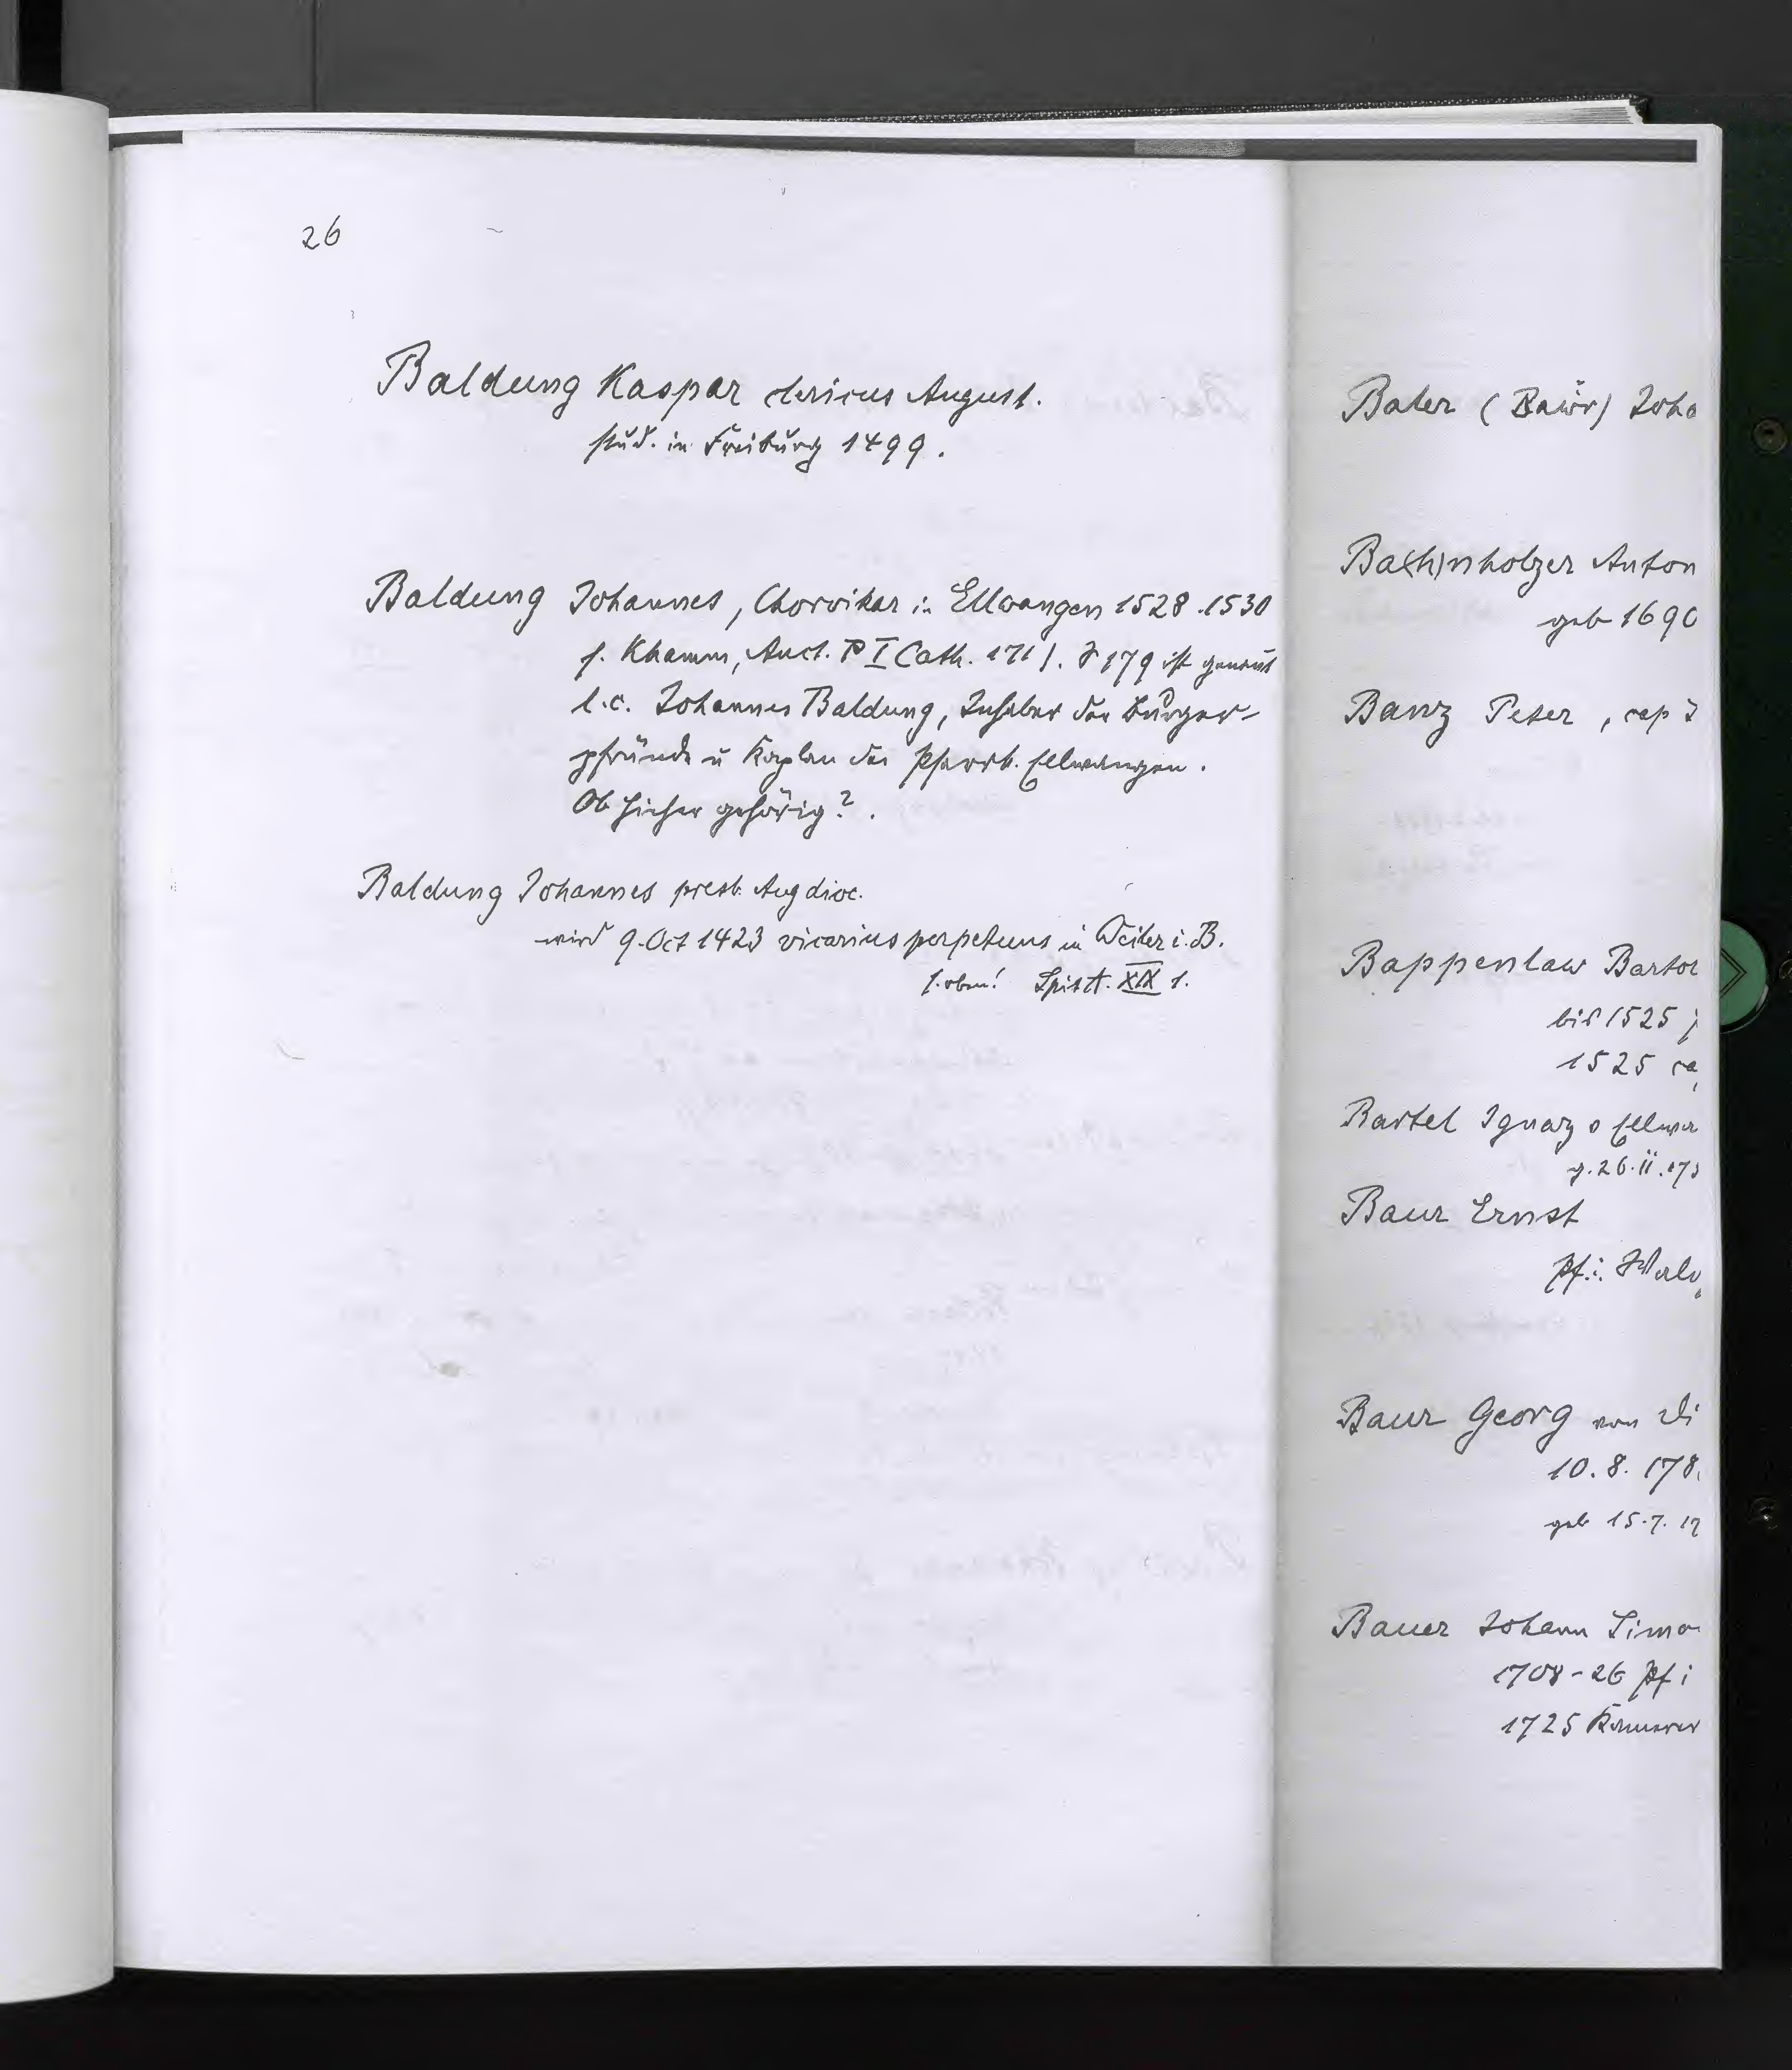 26
Baldung Kaspar clericus August.
stud. in Freiburg 1499.
Baldung Johannes, Chorvikar in Ellwangen 1528.1530
s. Khamm, Auct. P I Cath. 171 f. S 179 ist genannt
l.c. Johannes Baldung, Inhaber der Bürger-
pfründe u Kaplan der Pfarrk. Ellwangen.
Ob hieher gehörig?.
Baldung Johannes presb. Aug dioc.
wird 9. Oct 1423 vicarius perpetuus in Weiler i. B.
s. oben! XIX 1.
Baler (Bawr) Joha
Ba(h)nholzer Anton
geb 1690
Banz Peter, cap
Bappenlaw Bartol
bis 1525
1525 ca
Bartel Ignaz Ellwa
g. 26. II. 17
Baur Ernst
Pf. i.
Baur Georg von Di
10. 8. 178
geb 15. 7. 17
Bauer Johann Simo
1708-26 Pf i
1725 Kämmerer